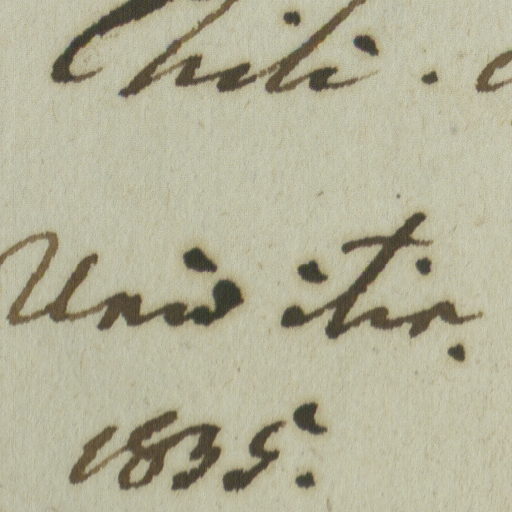 Chili.
Unio itin.
1835.